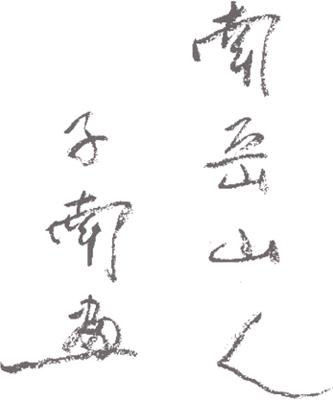 南岳山人
子南画